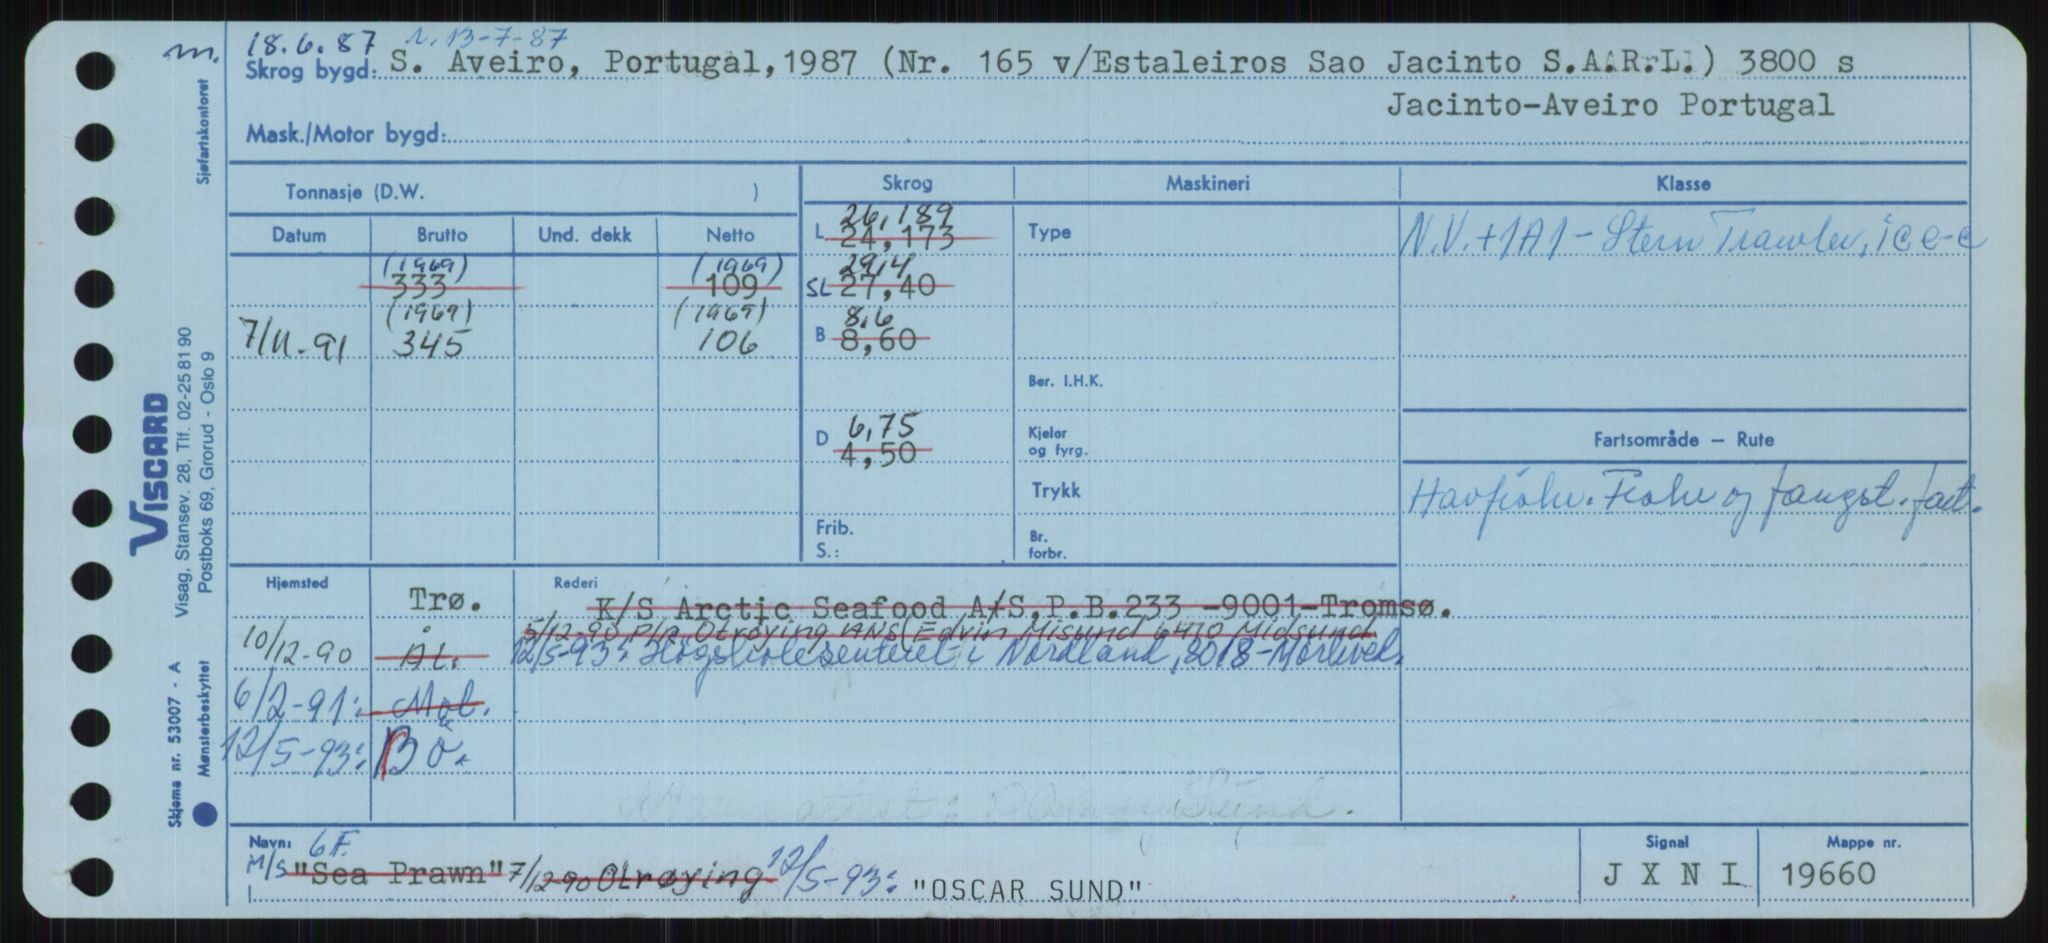 m. 18.6.87 r. 13-7-87
Skrog bygd: S. Aveiro, Portugal, 1987 (Nr. 165 v/Estaleiros Sao Jacinto S.A.R.L.) 3800 s
Jacinto-Aveiro Portugal
Mask./Motor bygd:
Tonnasje (D.W. )
Datum Brutto Und. dekk Netto
(1969) (1969)
333 109
(1969) (1969)
7/11-91 345 106
Skrog
26,189
L 24,173
29,4
SL 27,40
8,6
B 8,60
6,75
D 4,50
Frib.
S.:
Maskineri
Type
Ber. I.H.K.
Kjeler
og fyrg.
Trykk
Br.
forbr.
Klasse
N.V.+1A1- Stern Trawler, ice-c
Fartsområde — Rute
Havfiske. Fiske og fangst. fart.
Hjemsted
Trø.
10/12-90 Ål.
6/2-91: Mol.
12/5-93: Bö.
Rederi
K/S Arctic Seafood A/S.P.B.233 -9001-Tromsø.
5/12-90 P/r Otrøying ANS (Edvin Misund 6470 Midsund
12/5-93: Høgskolesenteret i Nordland, 8018-Mørkved.
Sund.
Navn: 6F.
M/S "Sea Prawn" 7/12-90 Otrøying 12/5-93: "OSCAR SUND"
Signal
J X N I
Mappe nr.
19660
Sjøfartskontoret
VISCARD
Visag, Stansev. 28, Tlf. 02-25 81 90
Postboks 69, Grorud - Oslo 9
Skjema nr. 53007 - A
Mønsterbeskyttet